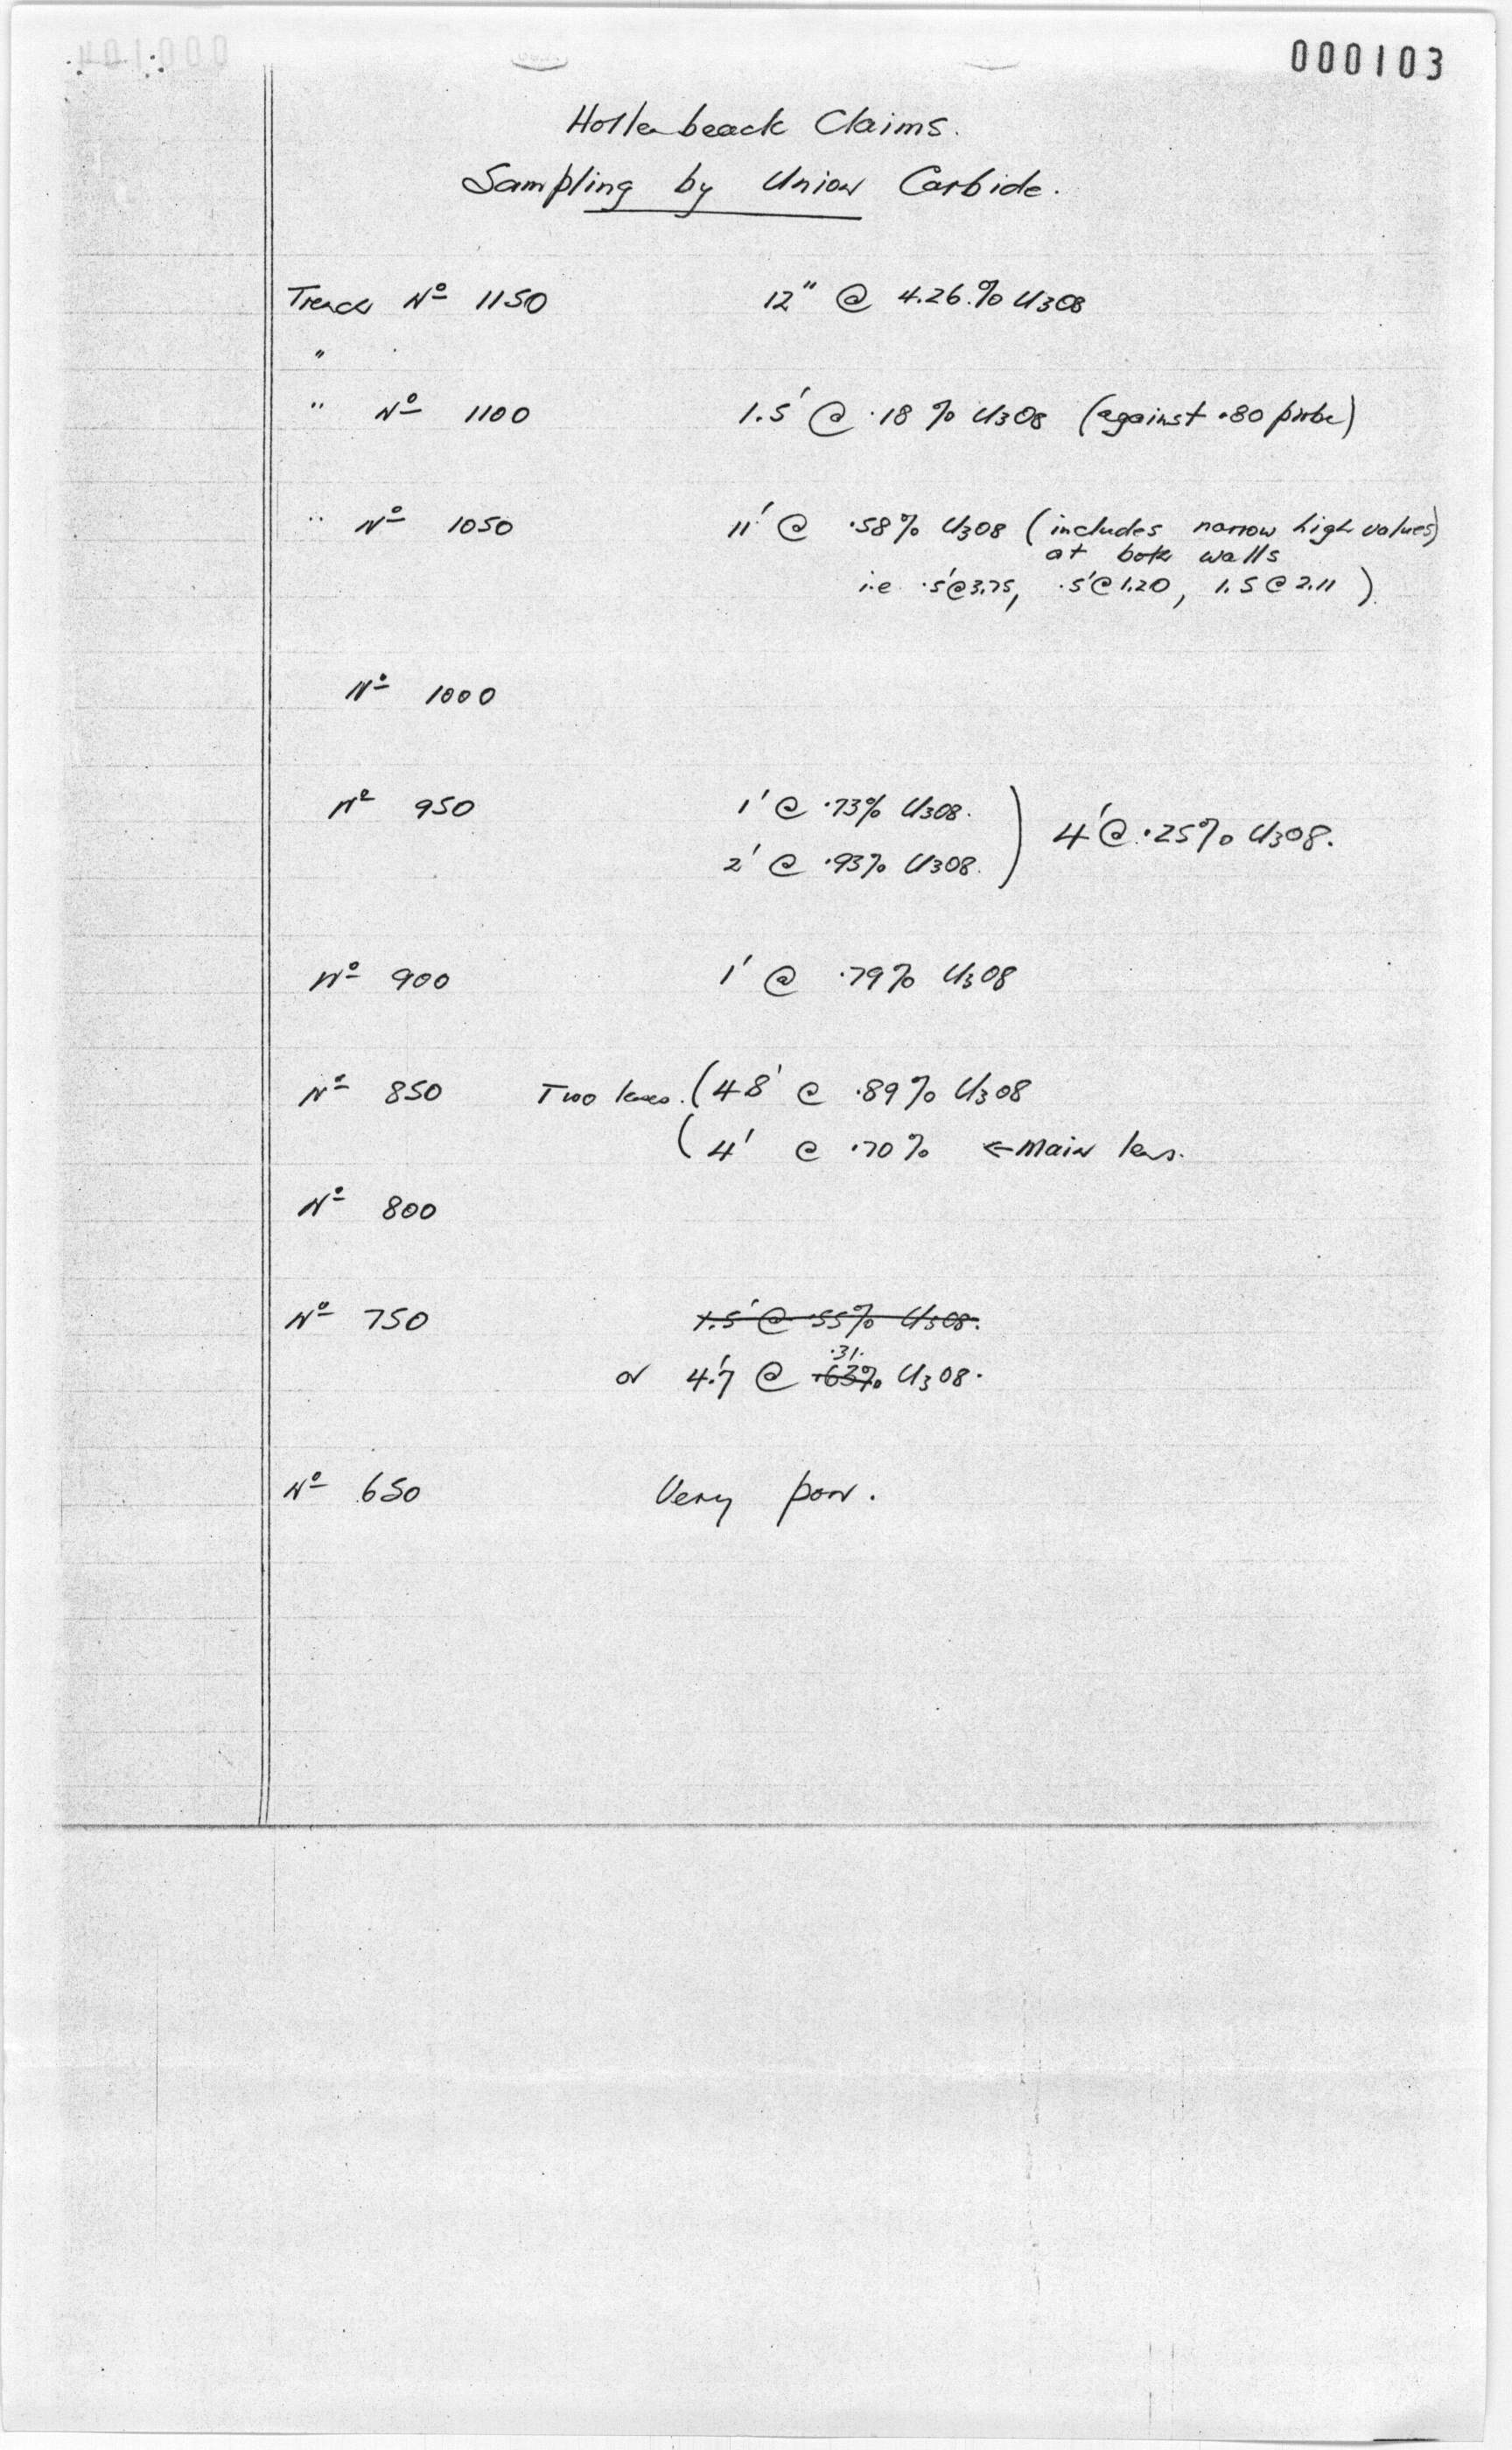 000103
Hollenbeack Claims.
Sampling by Union Carbide.
Trench Nº 1150 12" @ 4.26.% U3O8
"
" Nº 1100 1.5' @ .18 % U3O8 (against .80 probe)
" Nº 1050 11' @ .58% U3O8 (includes narrow high values)
at both walls
i.e .5'@3.75, .5'@1.20, 1.5@2.11 ).
Nº 1000
Nº 950 1' @ .73% U3O8. ) 4'@.25% U3O8.
2' @ .93% U3O8.
Nº 900 1' @ .79% U3O8
Nº 850 Two lenses. (48' @ .89% U3O8
( 4' @ .70% ← Main lens.
Nº 800
Nº 750 1.5' @ .55% U3O8.
.31.
or 4.'7 @ .63% U3O8.
Nº 650 Very poor.